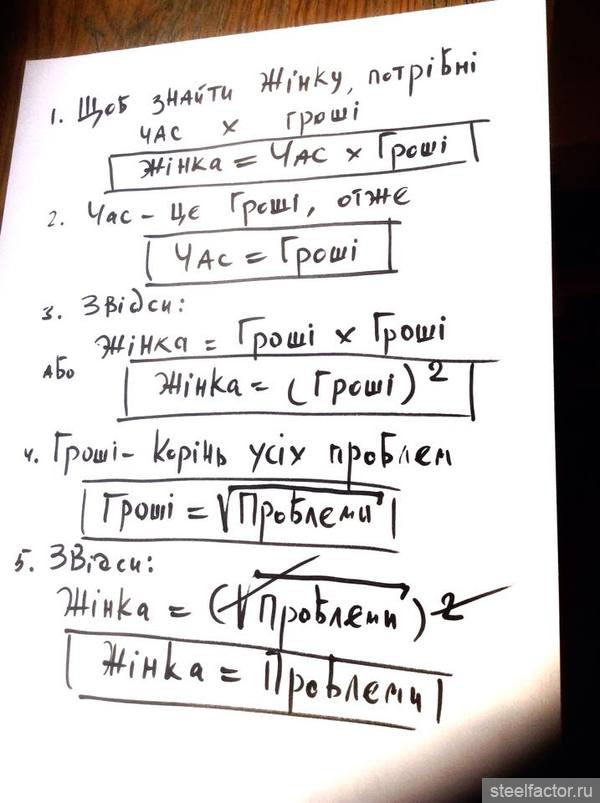 1. Щоб знайти жінку, потрібні
час x гроші
Жінка = Час x Гроші
2. Час - це Гроші, отже
Час = Гроші
3. Звідси:
Жінка = Гроші x Гроші
або
Жінка = (Гроші)²
4. Гроші - корінь усіх проблем
Гроші = √Проблеми
5. Звідси:
Жінка = (√Проблеми)²
Жінка = Проблеми
steelfactor.ru